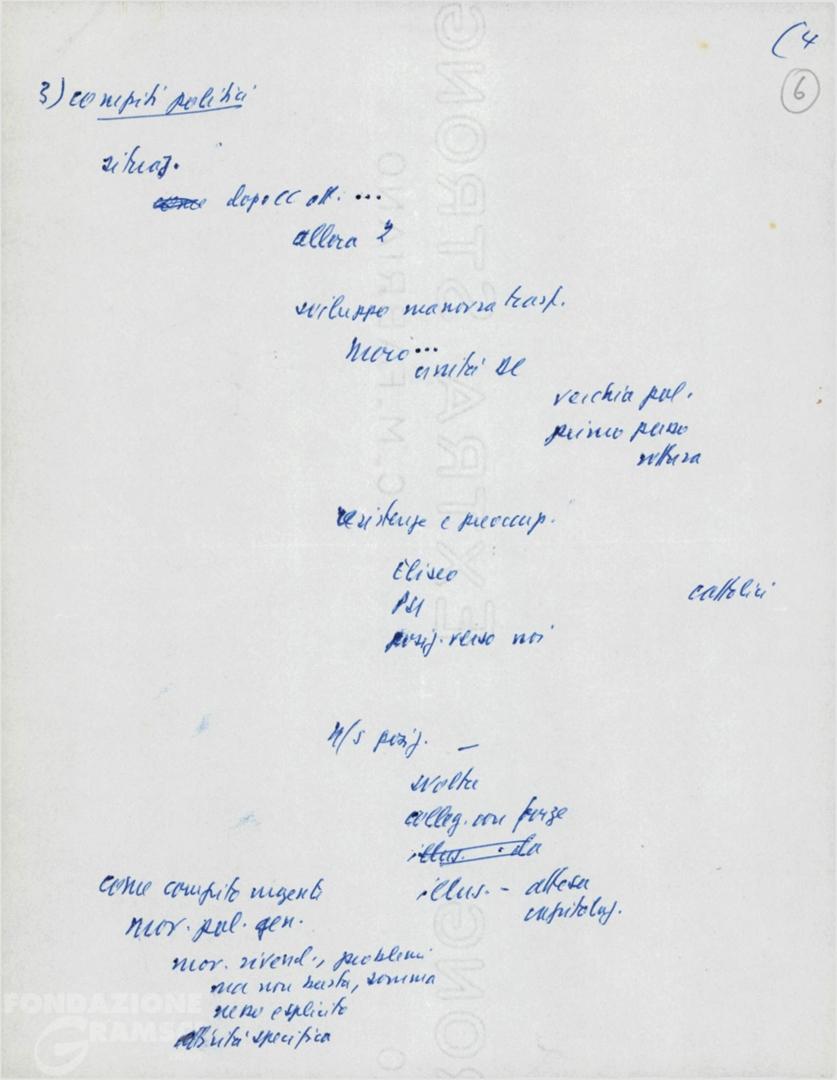 (4
6
3) compiti politici
situaz.
dopo CC ott. ...
allora 2
sviluppo manovra trasf.
Moro ...
unità DC
vecchia pol.
primo passo
rottura
resistenze e preoccup.
Eliseo
PSI
cattolici
posiz. verso noi
n/s posiz. —
svolta
colleg. con forze
illus. - attesa
capitolaz.
come compito urgente
mov. pol. gen.
mov. rivend., problemi
ma non basta, somma
nesso esplicito
attività specifica
C.M. FABRIANO
EXTRA STRONG
FONDAZIONE
GRAMSCI